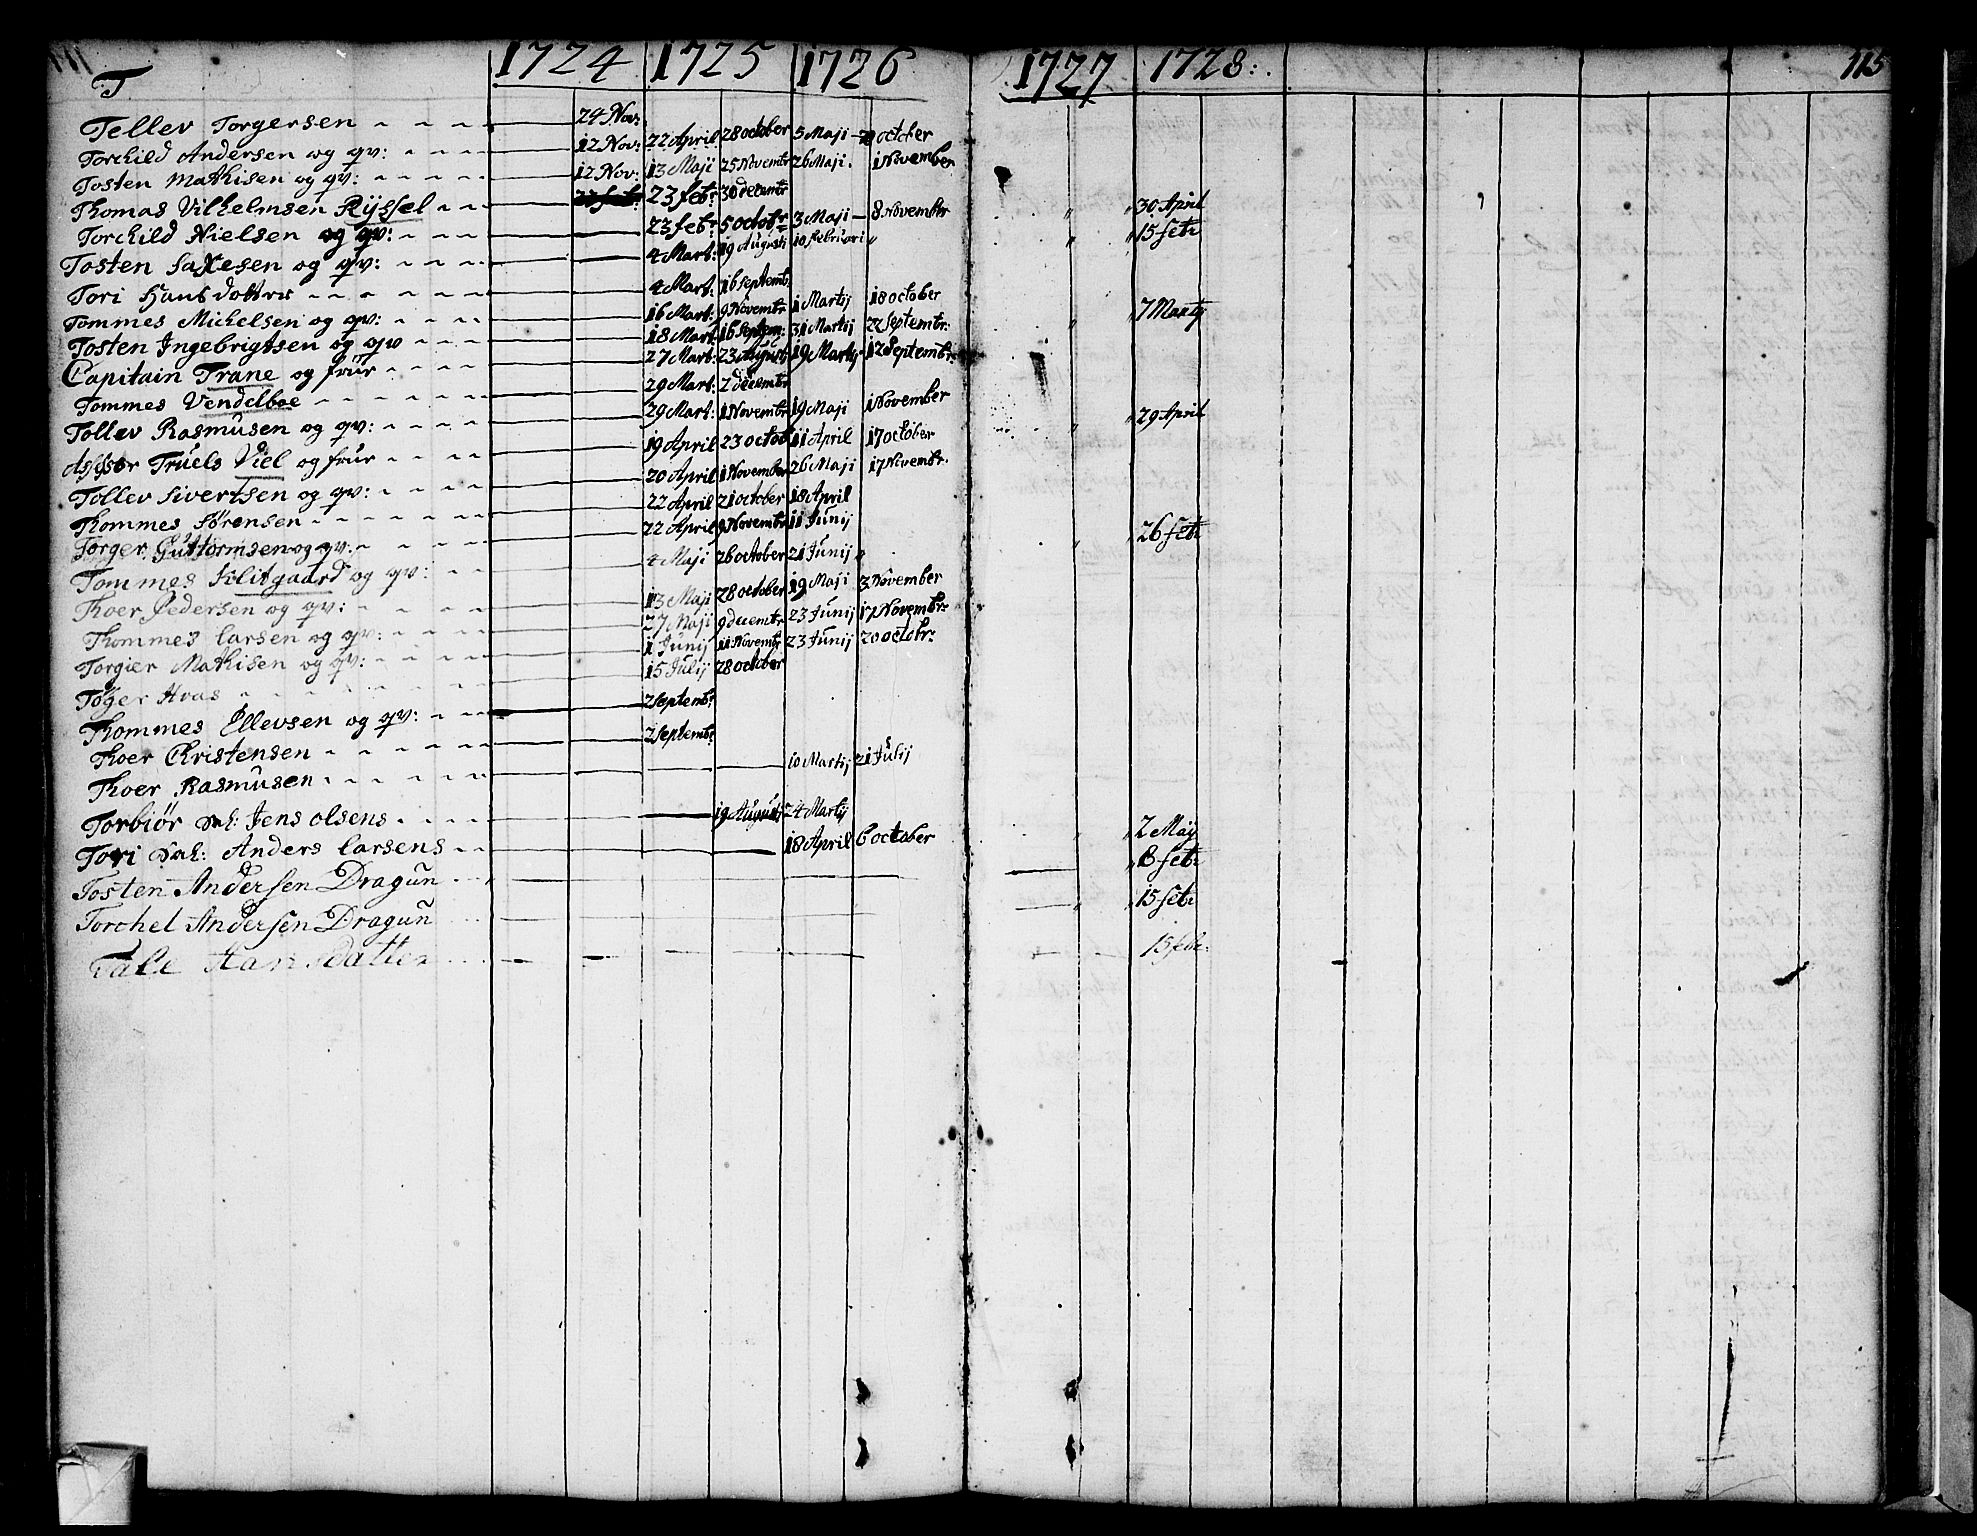 T 1724 1725 1726 1727 1728: 115
Tellev Torgersen 24 Nov:
Torchild Andersen og qv: 12 Nov: 22 April 28 october 5 Maji october
Tosten Mathisen og qv: 12 Nov: 13 Maji 25 Novembr 26 Maji. 1 November
Thomas Vilhelmsen Rijssel 23 feb: 30 decembr
Torchild Nielsen og qv: 23 feb: 5 octobr 3 Maji 8 November 30 April
Tosten Saxesen og qv: 4 Mart: 19 Augusti 10 februari 15 febr
Tori Hansdotter 4 Mart: 16 Septemb:
Tommes Michelsen og qv: 16 Mart: 9 Novembr 1 Martij 18 october 7 Martij
Tosten Ingebrigtsen og qv 18 Mart: 16 Septem: 31 Martij 22 Septembr:
Capitain Trane og frur 27 Mart: 23 August 19 Martij 12 Septembr:
Tommes Vendelboe 29 Mart: 2 decembr
Tollev Rasmusen og qv: 29 Mart: 1 Novembr 19 Maji 1 November 29 April
Assessor Truels Viel og frur 19 April 23 octob 11 April 17 october
Tollev Sivertsen og qv: 20 April 1 November 26 Maji 17 Novembr.
Thommes Sørensen 22 April 21 october 18 April
Torger Guttormsen og qv: 22 April 9 Novembr 11 Junij 26 febr
Tommes Klitgaard og qv: 4 Maji 26 october 21 Junij
Thoer Pedersen og qv: 13 Maji 28 october 19 Maji 3 November
Thommes Larsen og qv: 27 Maji 9 decembr 23 Junij 17 Novembr:
Torgier Mathisen og qv: 1 Junij 11 Novembr 23 Junij 20 octobr:
Tøger Hvas 15 Julij 28 october
Thommes Ellevsen og qv: 2 Septembr
Thoer Christensen 2 Septembr
Thoer Rasmusen 10 Martij 21 Julij
Torbiör Jens olsens 19 August 24 Martij
Tori Anders Larsens 18 April 6 october 2 Maÿ
Tosten Andersen Dragun 8 febr
Torchel Andersen Dragun 15 febr
Tale Hansdatter 15 febr: